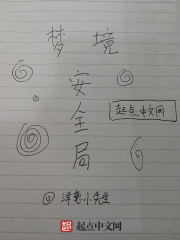 梦境
安全局
起点中文网
@洋葱小先生
起点中文网